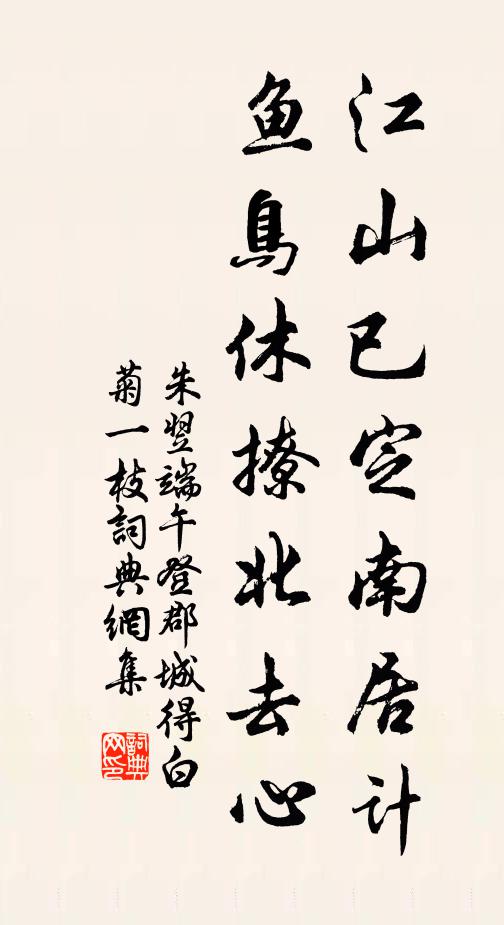 江山已定南居计
鱼鳥休撩北去心
朱翌端午登郡城得白
菊一枝詞典網集
詞典
网印